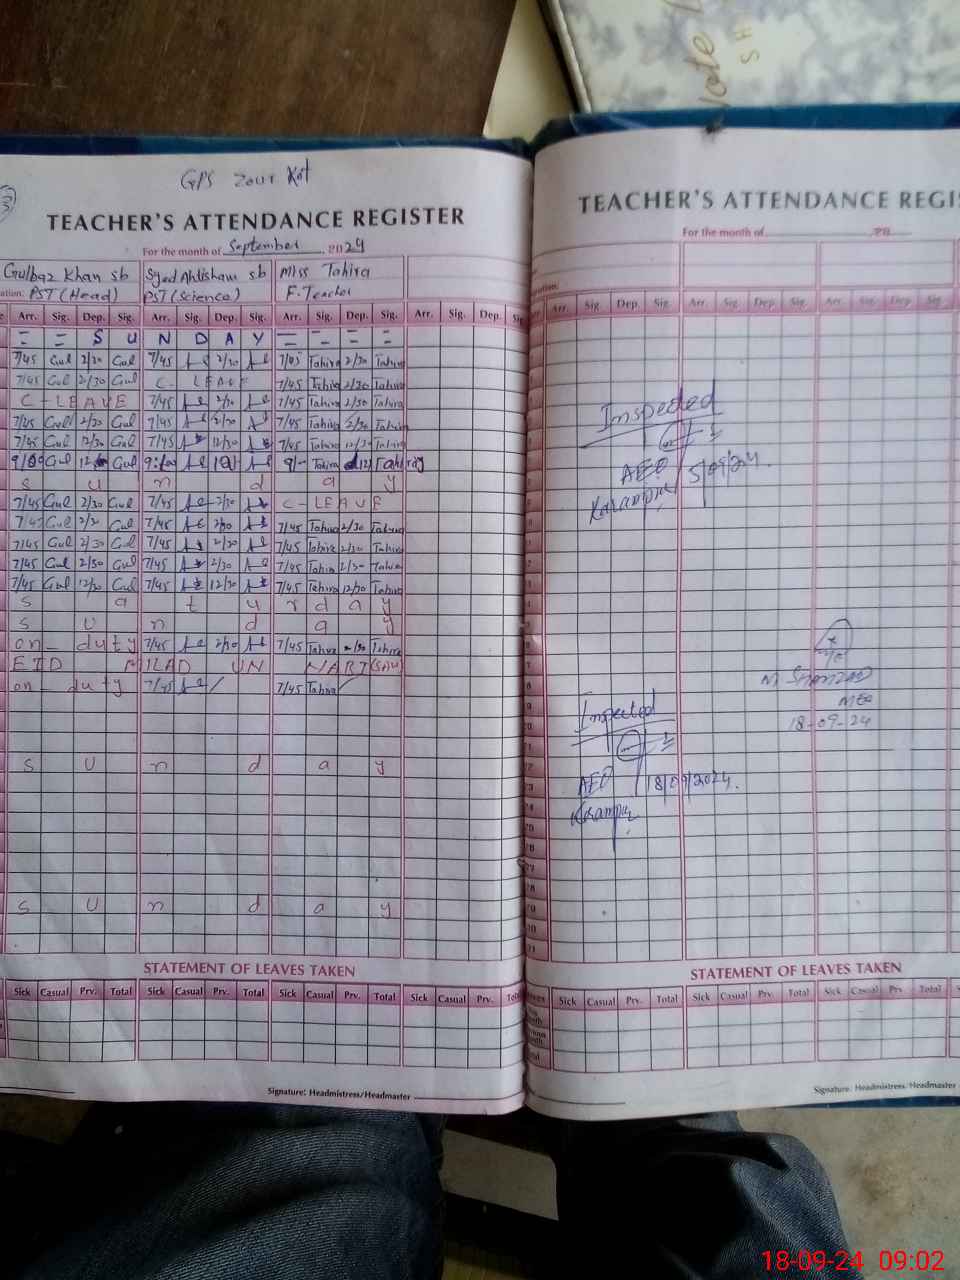 GPS Zour Kot
TEACHER'S ATTENDANCE REGISTER
For the month of September, 2024
Gulbaz Khan sb Syed Ahtisham sb Miss Tahira
PST (Head) PST (Science) F. Teacher
Arr. Sig. Dep. Sig. Arr. Sig. Dep. Sig. Arr. Sig. Dep. Sig. Arr. Sig. Dep.
= = S U N D A Y = = = =
7/45 Gul 2/30 Gul 7/45 2/30 7/45 Tahira 2/30 Tahira
7/45 Gul 2/30 Gul C- LEAVE 7/45 Tahira 2/30 Tahira
C-LEAVE 7/45 2/30 7/45 Tahira 2/30 Tahira
7/45 Gul 2/30 Gul 7/45 2/30 7/45 Tahira 2/30 Tahira
7/45 Gul 12/30 Gul 7/45 12/30 7/45 Tahira 12/30 Tahira
9/00 Gul Gul 9:00 9/- Tahira Tahira
S u n d a y
7/45 Gul 2/30 Gul 7/45 2/30 C-LEAVE
7/45 Gul Gul 7/45 2/30 7/45 Tahira 2/30 Tahira
7/45 Gul 2/30 Gul 7/45 2/30 7/45 Tahira 2/30 Tahira
7/45 Gul 2/30 Gul 7/45 2/30 7/45 Tahira 2/30 Tahira
7/45 Gul 12/30 Gul 7/45 12/30 7/45 Tahira 12/30 Tahira
S a t u r d a y
S u n d a y
on_ duty 7/45 2/30 7/45 Tahira Tahira
EID MILAD UN NABI (SAW)
on_ duty 7/45 7/45 Tahira
S U n d a y
S U n d a y
STATEMENT OF LEAVES TAKEN
Sick Casual Prv. Total Sick Casual Prv. Total Sick Casual Prv. Total Sick Casual Prv.
Signature: Headmistress/Headmaster
TEACHER'S ATTENDANCE
For the month of 20
Arr. Sig. Dep. Sig. Arr. Sig. Dep. Sig. Arr. Sig. Dep Sig.
Inspected
AEO 5/09/24.
Karampur
M Shahzad
MEA
18-09-24
Inspected
AEO 18/09/2024.
Karampur
STATEMENT OF LEAVES TAKEN
Sick Casual Prv. Total Sick Casual Prv. Total Sick Casual Prv. Total
Signature: Headmistress/Headmaster
18-09-24 09:02